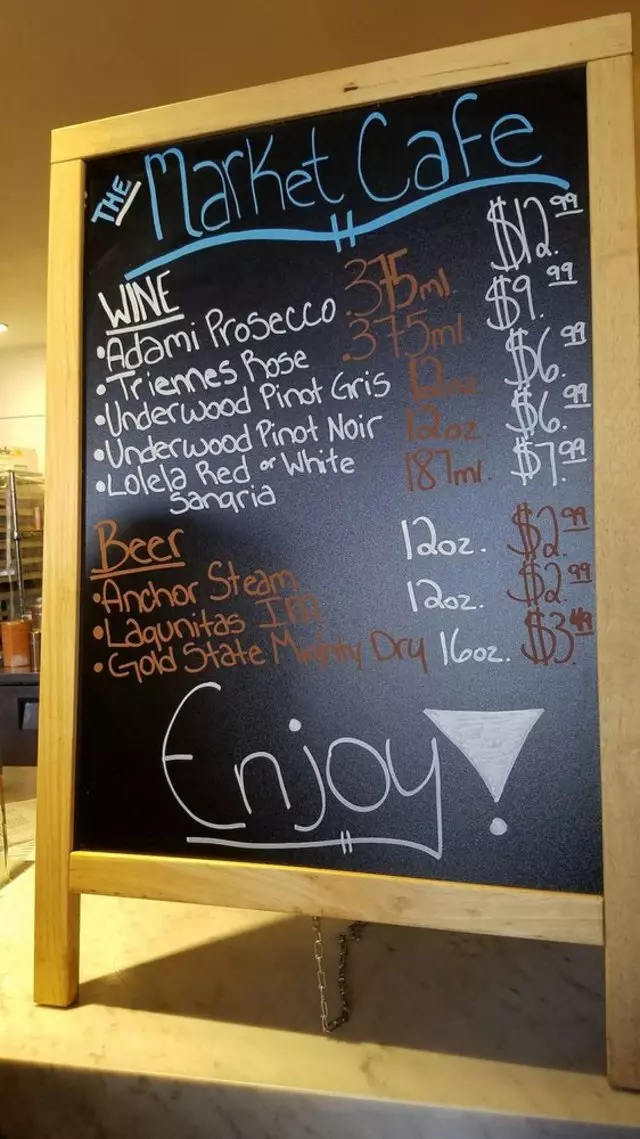 THE Market Cafe
WINE
•Adami Prosecco .375ml. $12.99
•Triennes Rose .375ml. $9.99
•Underwood Pinot Gris 12oz $6.99
•Underwood Pinot Noir 12oz $6.99
•Lolela Red or White 187ml. $7.99
Sangria
Beer
•Anchor Steam 12oz. $2.99
•Lagunitas IPA 12oz. $2.99
•Gold State Dry 16oz. $3.49
Enjoy!